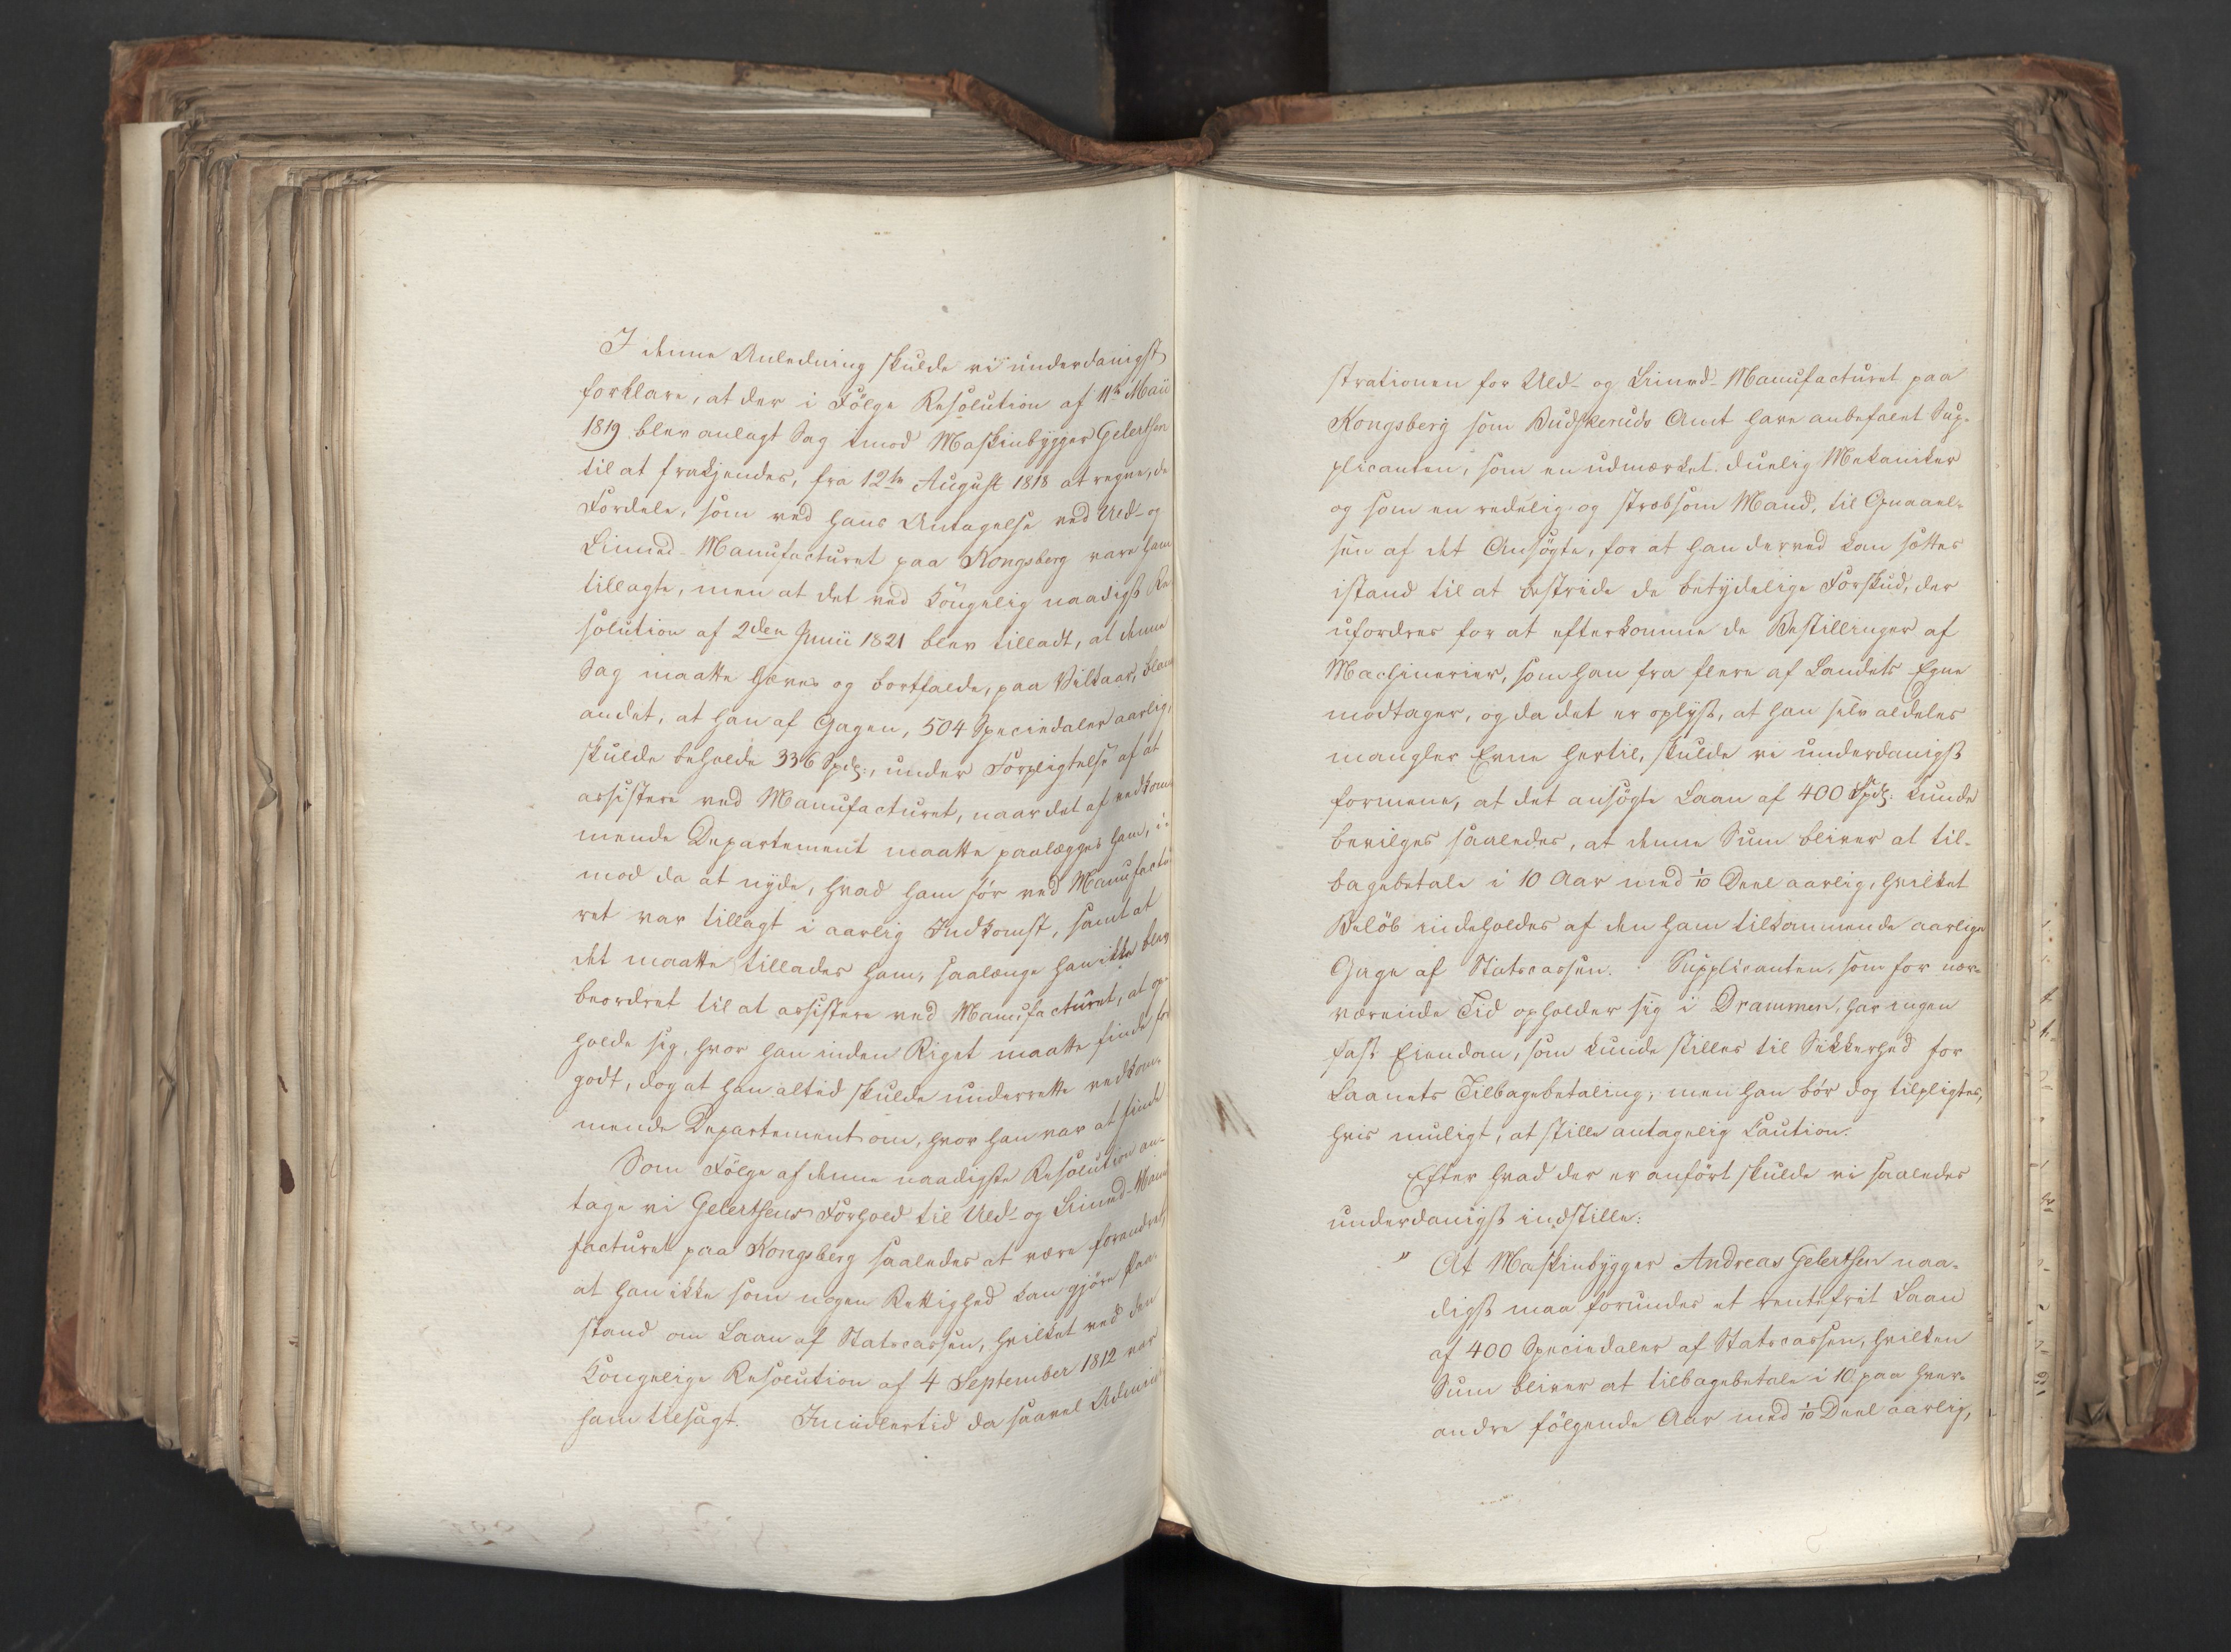 I denne Anledning skulde vi underdanigst
forklare, at der i Følge Resolution af 11te Maii
1819 blev anlagt Sag imod Maskinbygger Gelertsen
til at frakjendes, fra 12te August 1818 at regne, de
Fordele, som ved hans Antagelse ved Uld- og
Linned-Manufacturet paa Kongsberg vare ham
tillagte, men at det ved Kongelig naadigst Re
solution af 2den Junii 1821 blev tilladt, at denne
Sag maatte hæves og bortfalde, paa Vilkaar, blan
andet, at han af Gagen, 504 Speciedaler aarlig,
skulde beholde 336 Spdlr:, under Forpligtelse af at
assistere ved Manufacturet, naar det af vedkom
mende Departement maatte paalægges ham, i-
mod da at nyde, hvad ham før ved Manufactu
ret var tillagt i aarlig Indkomst, samt at
det maatte tillades ham, saalænge han ikke blev
beordret til at assistere ved Manufacturet, at op
holde sig, hvor han inden Riget maatte finde for
godt, dog at han altid skulde underrette vedkom-
mende Departement om, hvor han var at finde
Som Følge af denne naadigste Resolution an-
tage vi Gelertsens Forhold til Uld- og Linned-Manu
facturet paa Kongsberg saaledes at være forandret,
at han ikke som nogen Rettighed kan gjøre Paa-
stand om Laan af Statscassen, hvilket ved den
Kongelige Resolution af 4 September 1812 var
ham tilsagt. Imidlertid da saavel Admini
strationen for Uld- og Linned-Manufacturet paa
Kongsberg som Budskeruds Amt have anbefalet Sup-
plicanten, som en udmærket duelig Mekaniker
og som en redelig og stræbsom Mand, til Opnaael-
sen af det Ansøgte, for at han derved kan sættes
istand til at bestride de betydelige Forskud, der
ufordres for at efterkomme de Bestillinger af
Machinerier, som han fra flere af Landets Egne
modtager, og da det er oplyst, at han selv aldeles
mangler Evne hertil, skulde vi underdanigst
formene, at det ansøgte Laan af 400 Spdlr: kunde
bevilges saaledes, at denne Sum bliver at til-
bagebetale i 10 Aar med 1/10 Deel aarlig, hvilket
Beløb indeholdes af den ham tilkommende aarlige
Gage af Statscassen. Supplicanten, som for nær-
værende Tid opholder sig i Drammen, har ingen
fast Eiendom, som kunde stilles til Sikkerhed for
Laanets Tilbagebetaling, men han bør dog tilpligtes,
hvis muligt, at stille antagelig Caution.
Efter hvad der er anført skulde vi saaledes
underdanigst indstille:
" At Maskinbygger Andreas Gelertsen naa-
digst maa forundes et rentefrit Laan
af 400 Speciedaler af Statscassen, hvilken
Sum bliver at tilbagebetale i 10 paa hver-
andre følgende Aar med 1/10 Deel aarlig,